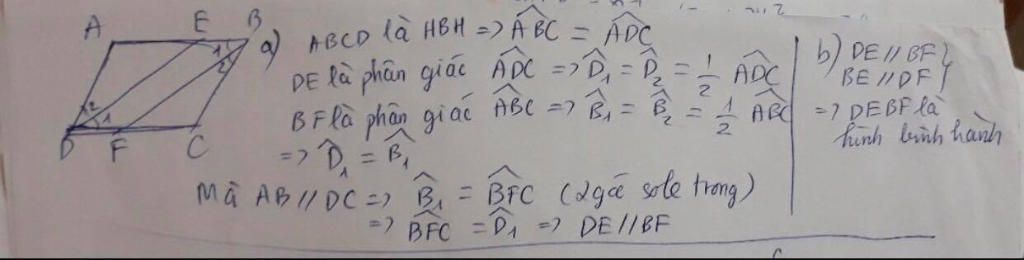 A E B
1
2
2
1
D F C
a) ABCD là HBH => ABC = ADC
DE là phân giác ADC => D1 = D2 = 1/2 ADC
BF là phân giác ABC => B1 = B2 = 1/2 ABC
=> D1 = B1
Mà AB // DC => B1 = BFC (2 góc sole trong)
=> BFC = D1 => DE // BF
b) DE // BF }
BE // DF }
=> DEBF là
hình bình hành